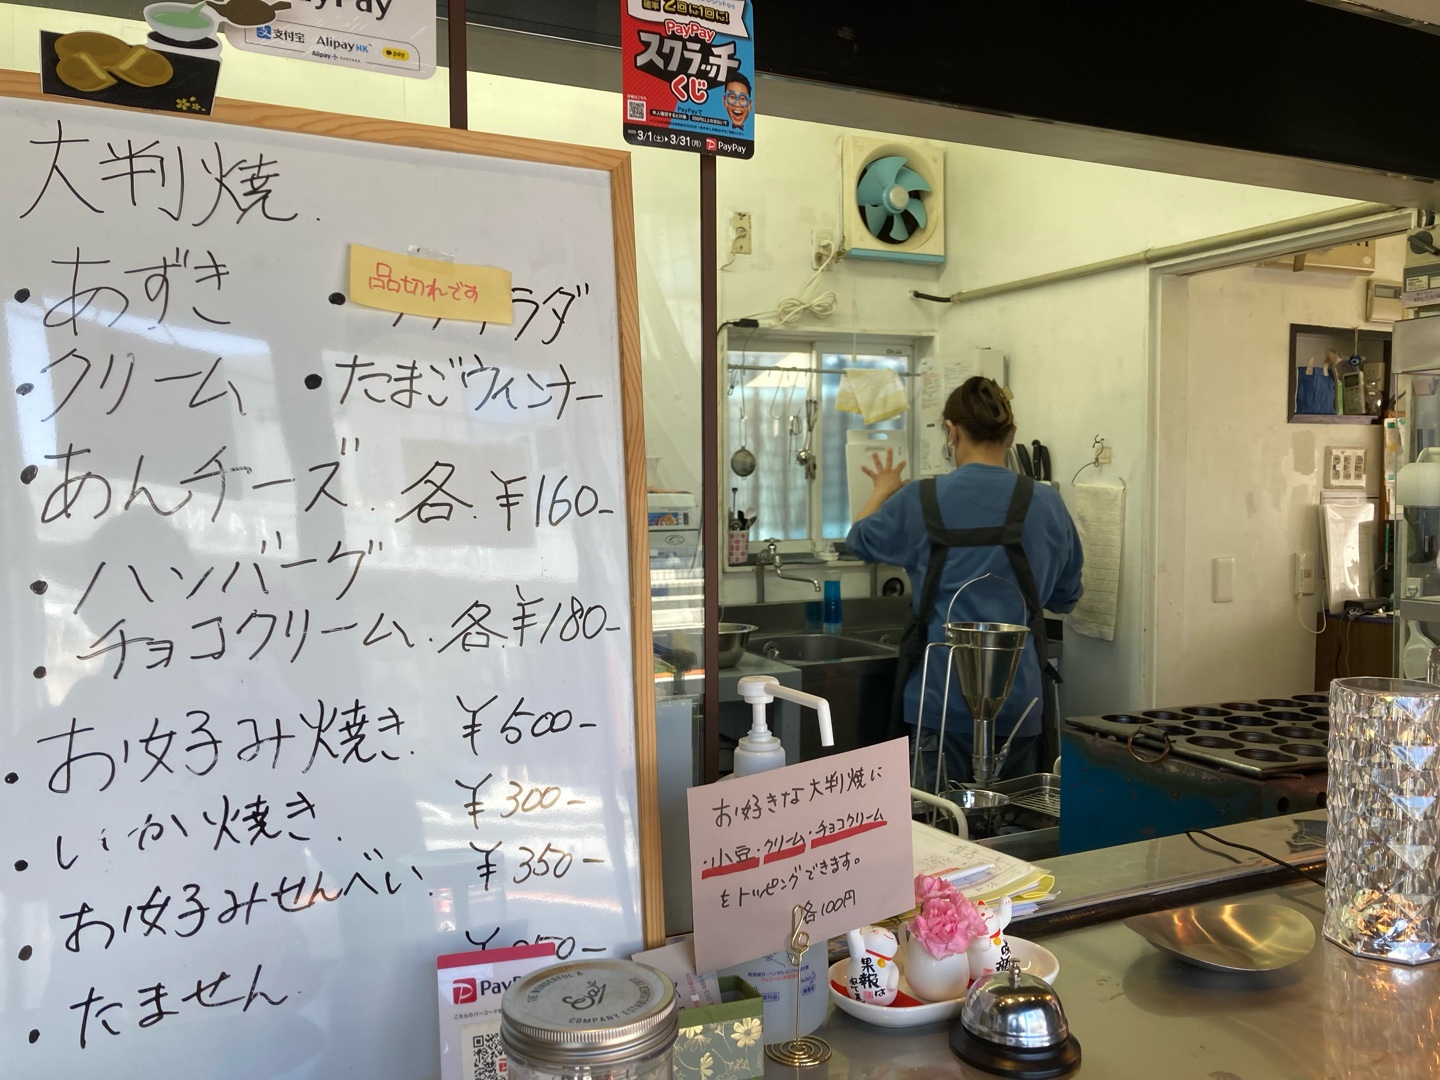 PayPay
支付宝 AlipayHK pay
Alipay+ PARTNER
確率2回に1回に!
PayPay
スクラッチ
くじ
3/1(土)▶3/31(月) PayPay
大判焼.
・あずき
品切れです
・ ラダ
・クリーム
・たまごウィンナー
・あんチーズ. 各¥160-
・ハンバーグ
・チョコクリーム. 各¥180-
・お好み焼き. ¥500-
・いか焼き. ¥300-
・お好みせんべい. ¥350-
・たません. 50-
お好きな大判焼に
・小豆・クリーム・チョコクリーム
をトッピングできます。
各100円
PayP
COMPANY
果報は